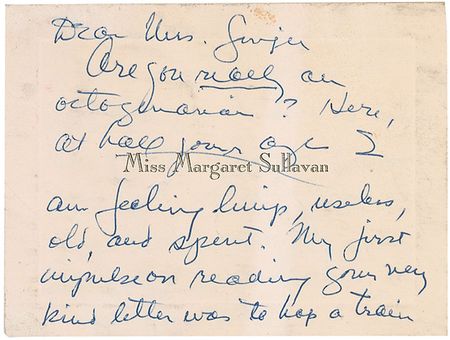 Dear Mrs.
Are you really an
octogenarian? Here,
at half your age I
Miss Margaret Sullavan
am feeling limp, useless,
old, and spent. My first
impulse on reading your very
kind letter was to hop a train